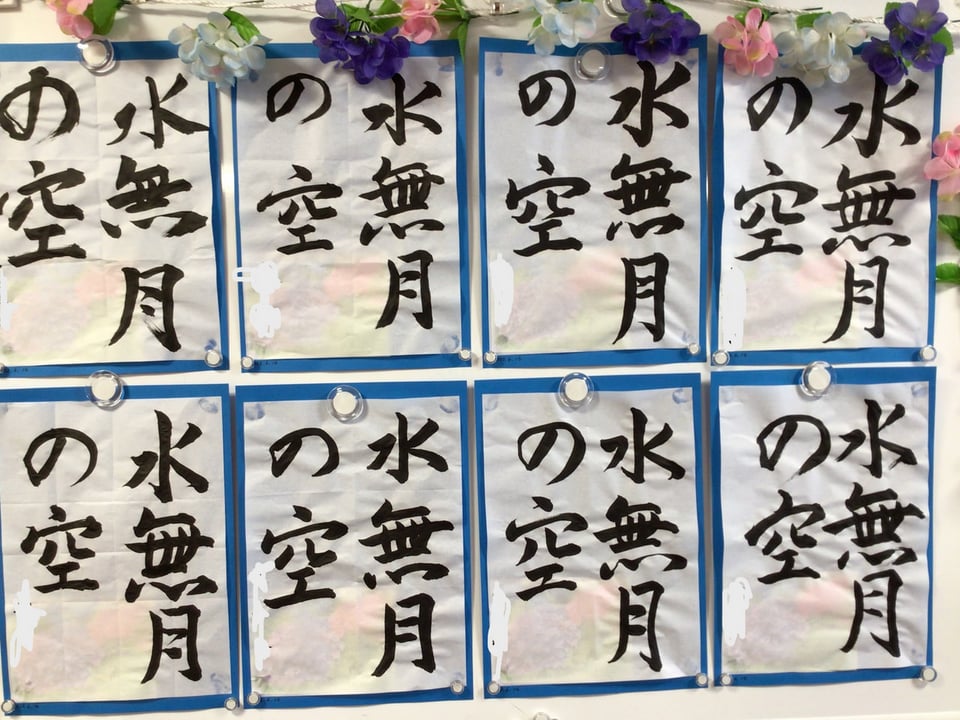 水無月
の空
水無月
の空
水無月
の空
水無月
の空
水無月
の空
水無月
の空
水無月
の空
水無月
の空